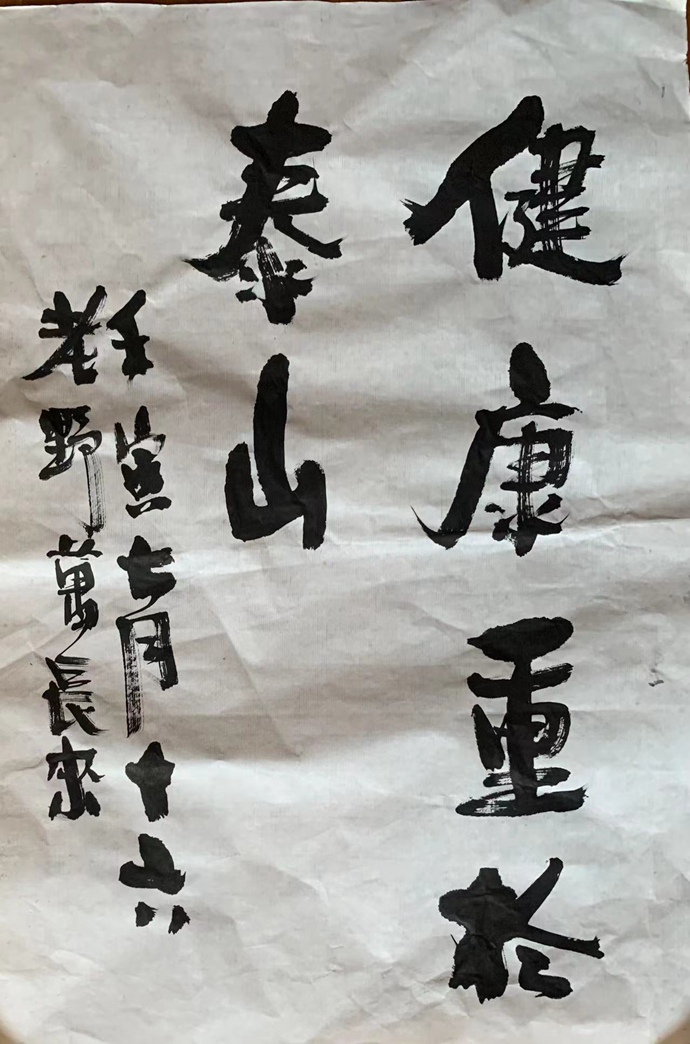 健康重於
泰山
壬寅七月十六
老野萬長來